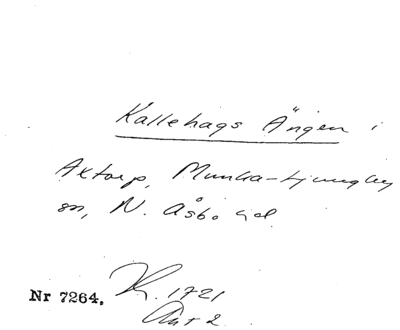 Kallehags Ängen i
Axtorp, Munka-Ljungby
sn, N. Åsbo hd
K. 1721
Nr 7264. Akt 2.